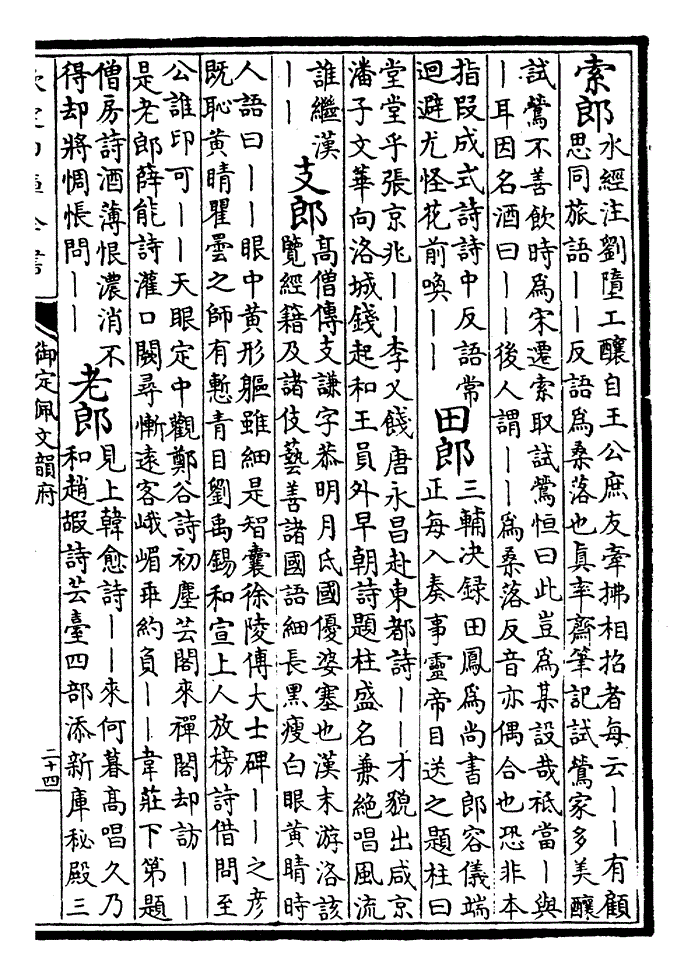 索郎
水經注劉墮工釀自王公庶友牽拂相招者每云丨丨有顧
思同旅語丨丨反語為桑落也真率齋筆記試鶯家多美釀
試鶯不善飲時為宋遷索取試鶯恒曰此豈為某設哉祇當丨與
丨耳因名酒曰丨丨後人謂丨丨為桑落反音亦偶合也恐非本
指段成式詩詩中反語常
迴避尤怪花前喚丨丨
田郎
三輔决録田鳳為尚書郎容儀端
正每入奏事靈帝目送之題柱曰
堂堂乎張京兆丨丨李乂餞唐永昌赴東都詩丨丨才貌出咸京
潘子文華向洛城錢起和王員外早朝詩題柱盛名兼絕唱風流
誰繼漢
丨丨
支郎
高僧傳支謙字恭明月氐國優婆塞也漢末游洛該
覽經籍及諸伎藝善諸國語細長黑瘦白眼黄睛時
人語曰丨丨眼中黄形軀雖細是智囊徐陵傅大士碑丨丨之彦
既恥黄睛瞿曇之師有慙青目劉禹錫和宣上人放榜詩借問至
公誰印可丨丨天眼定中觀鄭谷詩初塵芸閣來禪閣却訪丨丨
是老郎薛能詩灌口闕尋慚遠客峨嵋乖約負丨丨韋莊下第題
僧房詩酒薄恨濃消不
得却將惆悵問丨丨
老郎
見上韓愈詩丨丨來何暮高唱久乃
和趙嘏詩芸臺四部添新庫秘殿三
御定佩文韻府
二十四